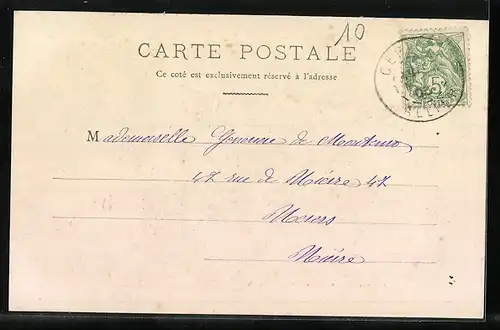 10
CARTE POSTALE
Ce côté est exclusivement réservé à l'adresse
5
Mademoiselle de
47 rue de Nièvre 47
Nevers
Nièvre